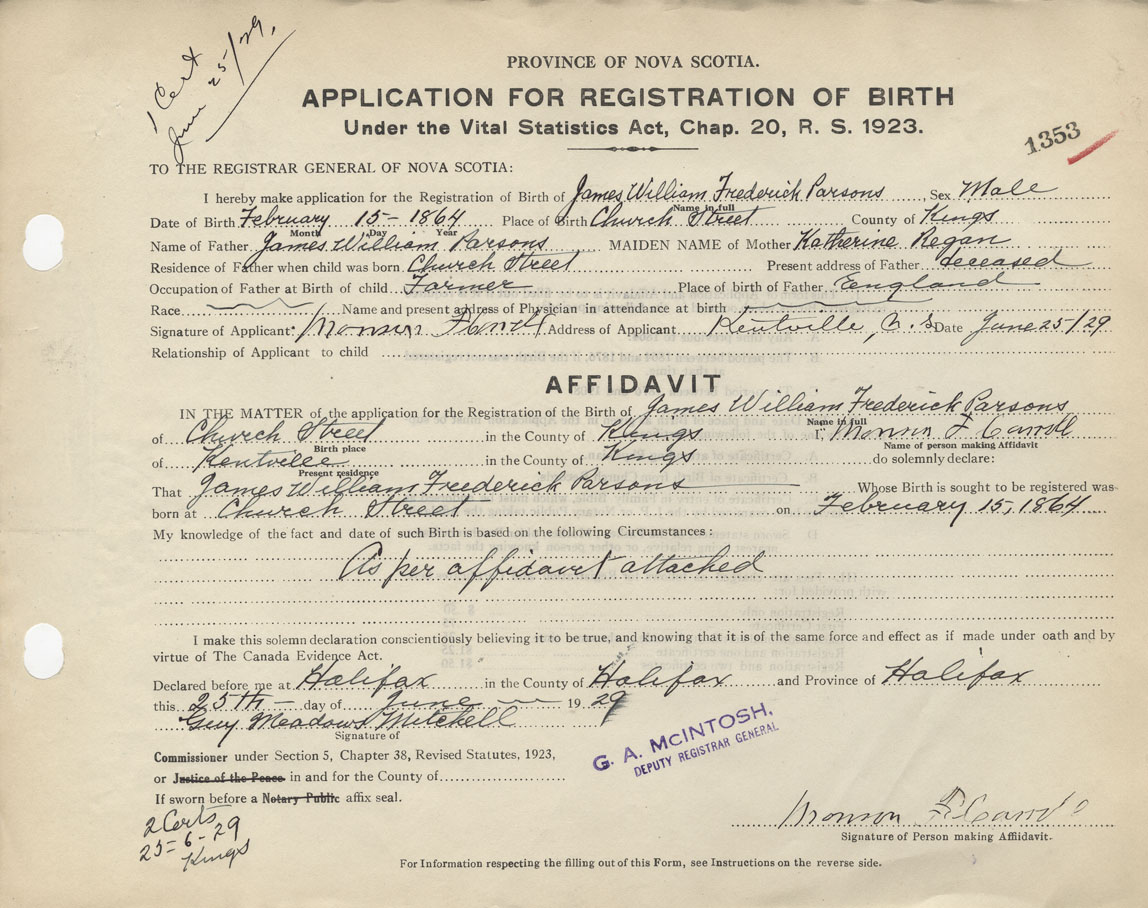 1 Cert
June 25/29,
PROVINCE OF NOVA SCOTIA.
APPLICATION FOR REGISTRATION OF BIRTH
Under the Vital Statistics Act, Chap. 20, R. S. 1923.
1353
TO THE REGISTRAR GENERAL OF NOVA SCOTIA:
I hereby make application for the Registration of Birth of James William Frederick Parsons, Sex Male
Name in full
Date of Birth February 15 - 1864 Place of Birth Church Street County of Kings
Month Day Year
Name of Father James William Parsons MAIDEN NAME of Mother Katherine Regan
Residence of Father when child was born Church Street Present address of Father deceased
Occupation of Father at Birth of child Farmer Place of birth of Father England
Race Name and present address of Physician in attendance at birth
Signature of Applicant: Monson Address of Applicant Kentville, N. S. Date June 25/29
Relationship of Applicant to child
AFFIDAVIT
IN THE MATTER of the application for the Registration of the Birth of James William Frederick Parsons
Name in full
of Church Street in the County of Kings I, Monson F Carroll
Birth place Name of person making Affidavit
of Kentville in the County of Kings do solemnly declare:
Present residence
That James William Frederick Parsons Whose Birth is sought to be registered was
born at Church Street on February 15, 1864
My knowledge of the fact and date of such Birth is based on the following Circumstances:
As per affidavit attached
I make this solemn declaration conscientiously believing it to be true, and knowing that it is of the same force and effect as if made under oath and by
virtue of The Canada Evidence Act.
Declared before me at Halifax in the County of Halifax and Province of Halifax
this 25th - day of June 1929
Guy Meadows Mitchell
Signature of
G. A. McINTOSH,
DEPUTY REGISTRAR GENERAL
Commissioner under Section 5, Chapter 38, Revised Statutes, 1923,
or Justice of the Peace in and for the County of
If sworn before a Notary Public affix seal.
2 Certs
25-6-29
Kings
Monson F Carroll
Signature of Person making Affidavit.
For Information respecting the filling out of this Form, see Instructions on the reverse side.